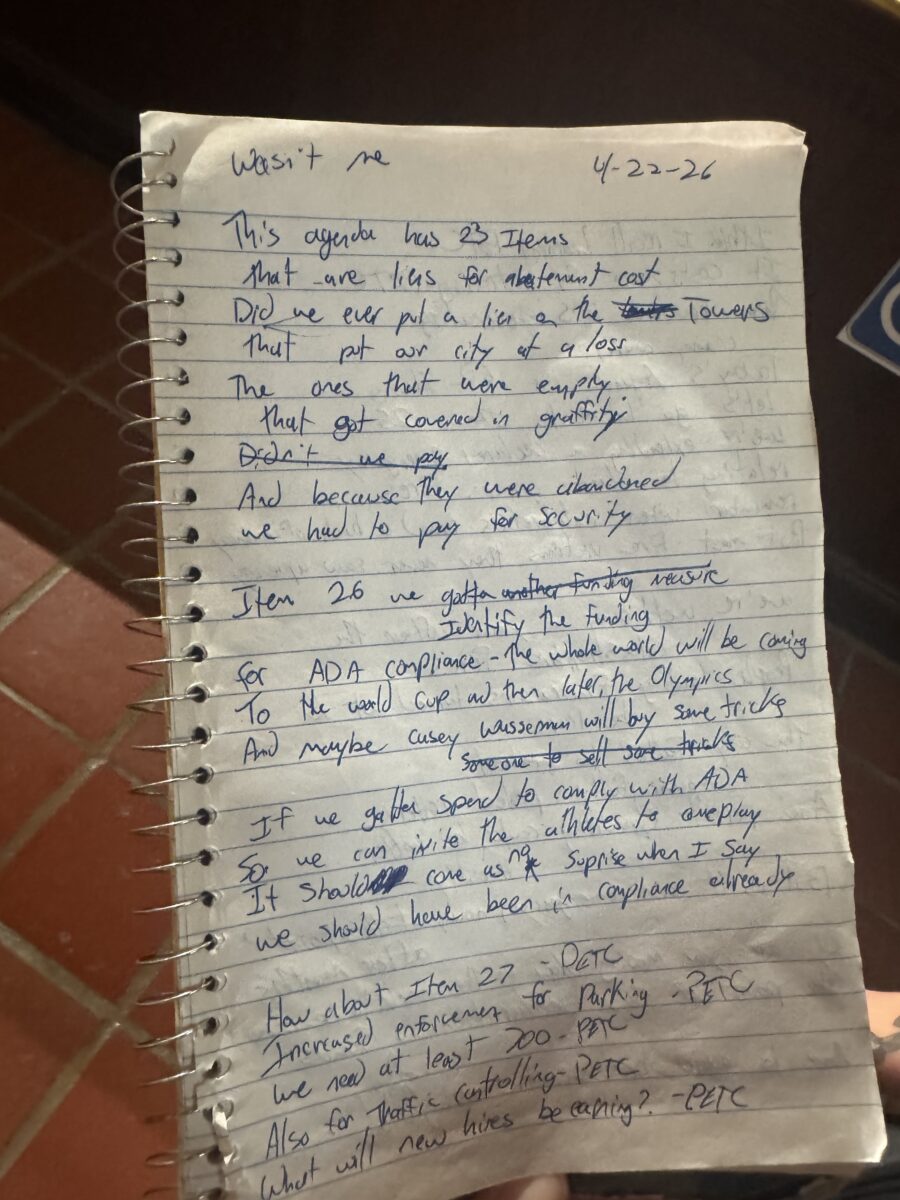 Wasn't me 4-22-26
This agenda has 23 Items
that are liens for abatement cost
Did we ever put a lien on the Towers
that put our city at a loss
The ones that were empty
that got covered in graffity
Didn't we pay
And because they were abandoned
we had to pay for security
Item 26 we gotta another funding measure
Identify the funding
for ADA compliance - the whole world will be coming
To the world cup and then later, the Olympics
And maybe casey wasserman will buy some tricks
someone to sell some tricks
If we gotta spend to comply with ADA
So we can invite the athletes to come play
It should come as no suprise when I say
we should have been in compliance already
How about Item 27 - PETC
Increased enforcement for Parking - PETC
we need at least 200 - PETC
Also for Traffic controlling - PETC
What will new hires be earning? - PETC